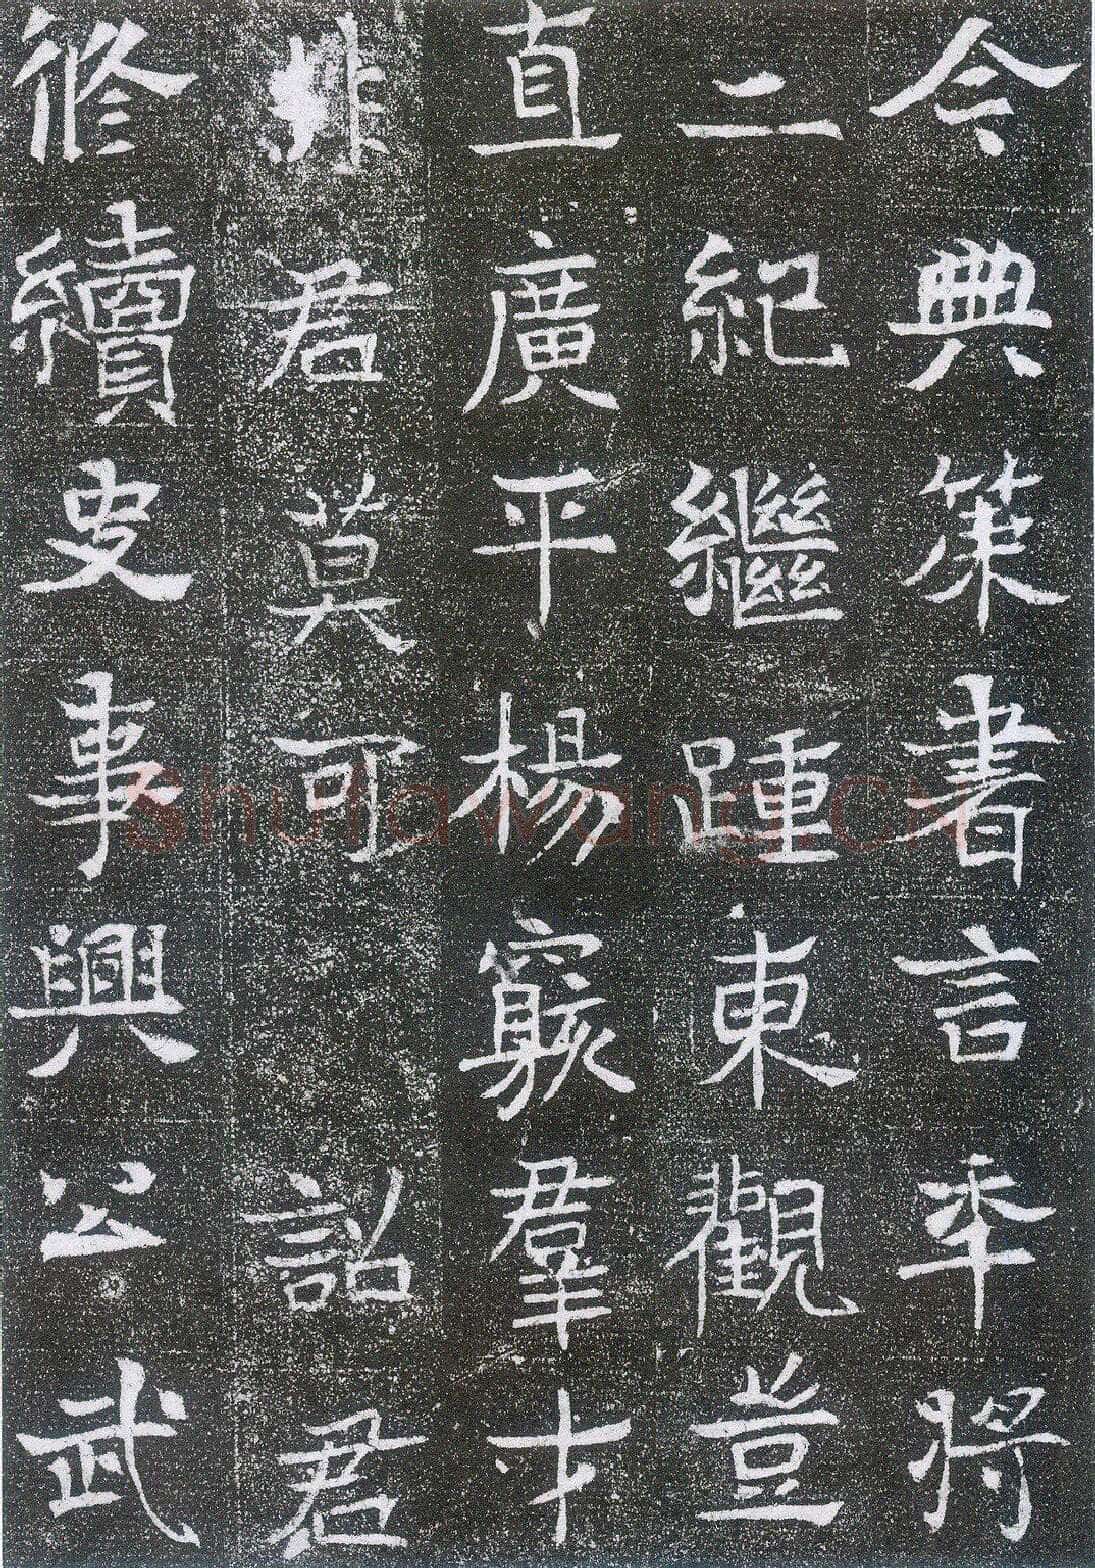 今典策書言年將
二紀繼踵東觀豈
直廣平楊覈羣才
非君莫可詔君
脩續史事興公武
shufawang.cn